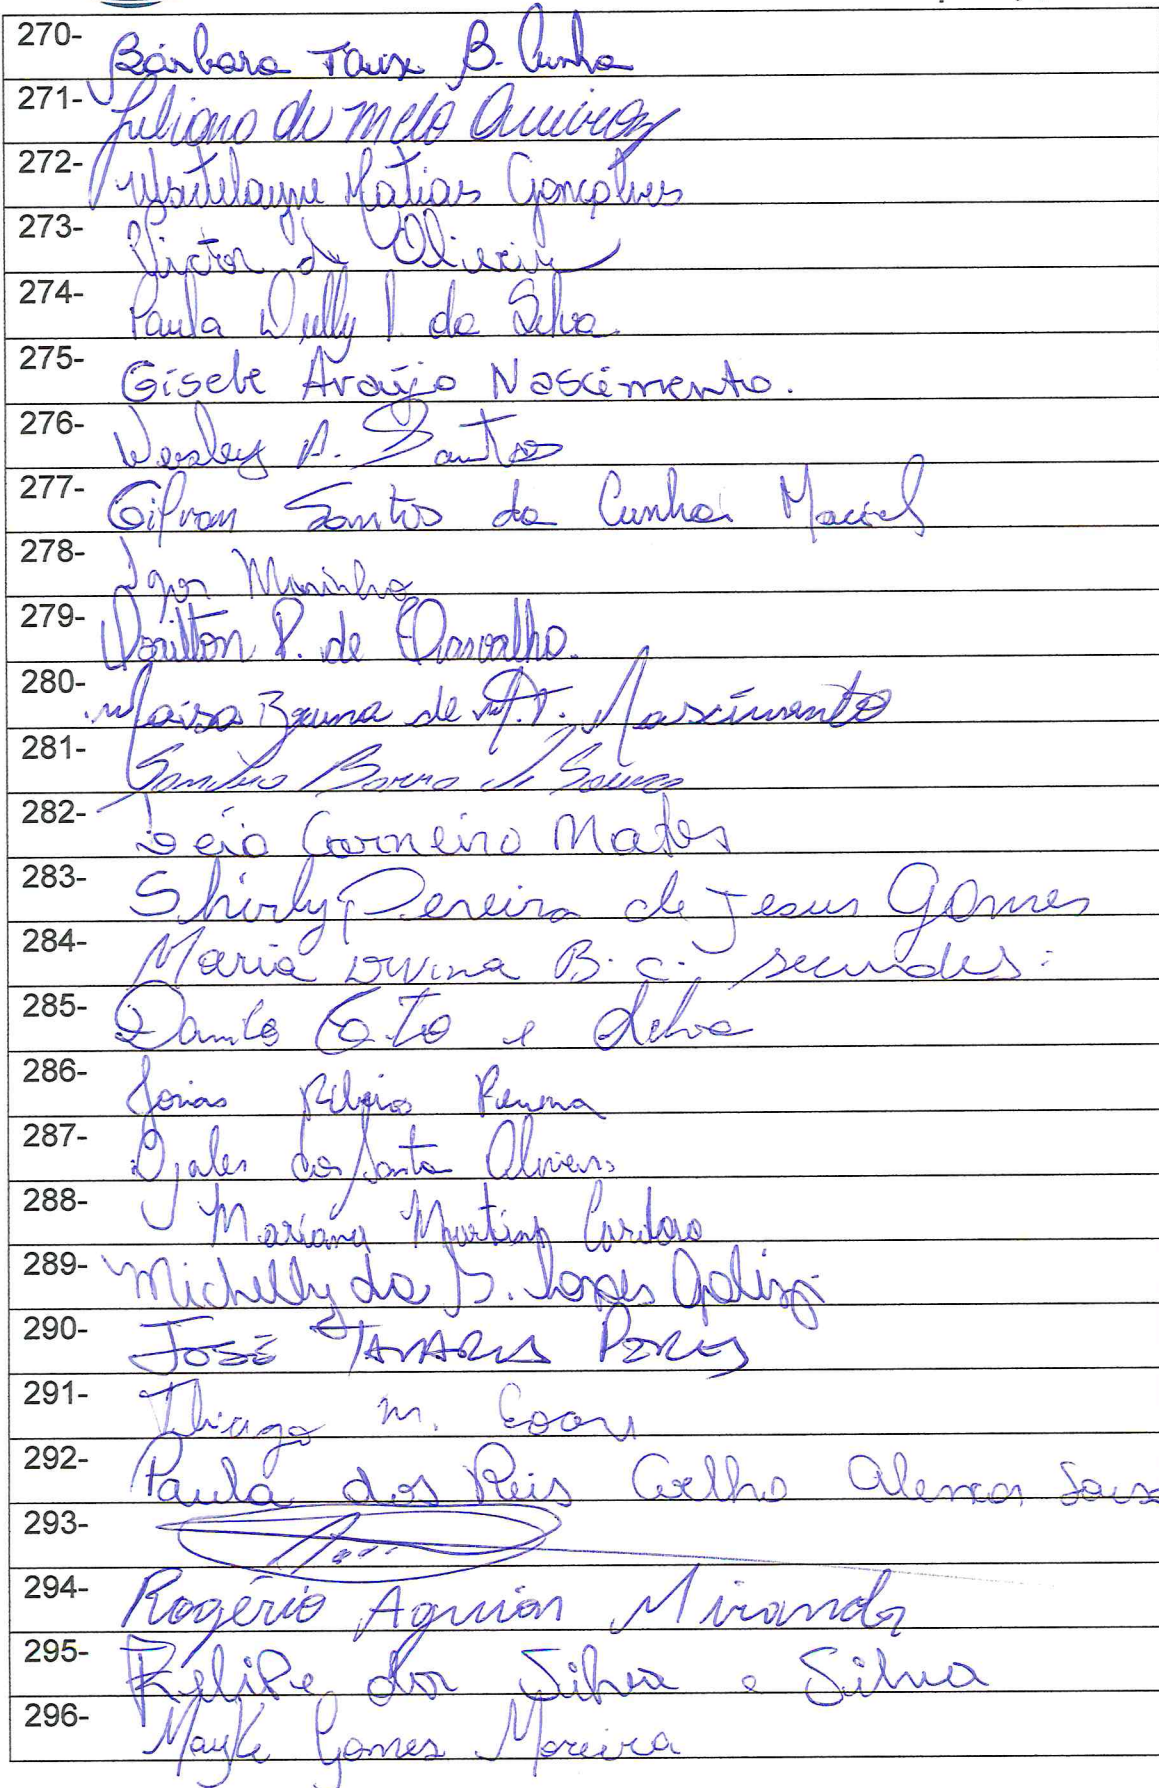 270- Bárbara Taux B. Cunha
271- Juliano de Melo Queiroz
272- Matias Gonçalves
273- Victor de Oliveira
274- Paula Welly P. da Silva.
275- Gisele Araújo Nascimento.
276- Wesley A. Santos
277- Gilvan Santos da Cunha Maciel
278- Igor Marinho
279- P. de Carvalho.
280- Maisa Bruna de Nascimento
281- Barros de Souza
282- Carneiro Matos
283- Shirly Pereira de Jesus Gomes
284- Maria Divina B. C. secundes.
285- Danilo e Silva
286- Jonas Ribeiro
287- dos Santos Oliveira
288- Mariana Martins Cardoso
289- Michelly da S. Lopes
290- José Tavares Peres
291- Thiago M.
292- Paula dos Reis Coelho Alencar Souza
293-
294- Rogério Aguiar Miranda
295- Felipe dos Silva e Silva
296- Mayke Gomes Moreira